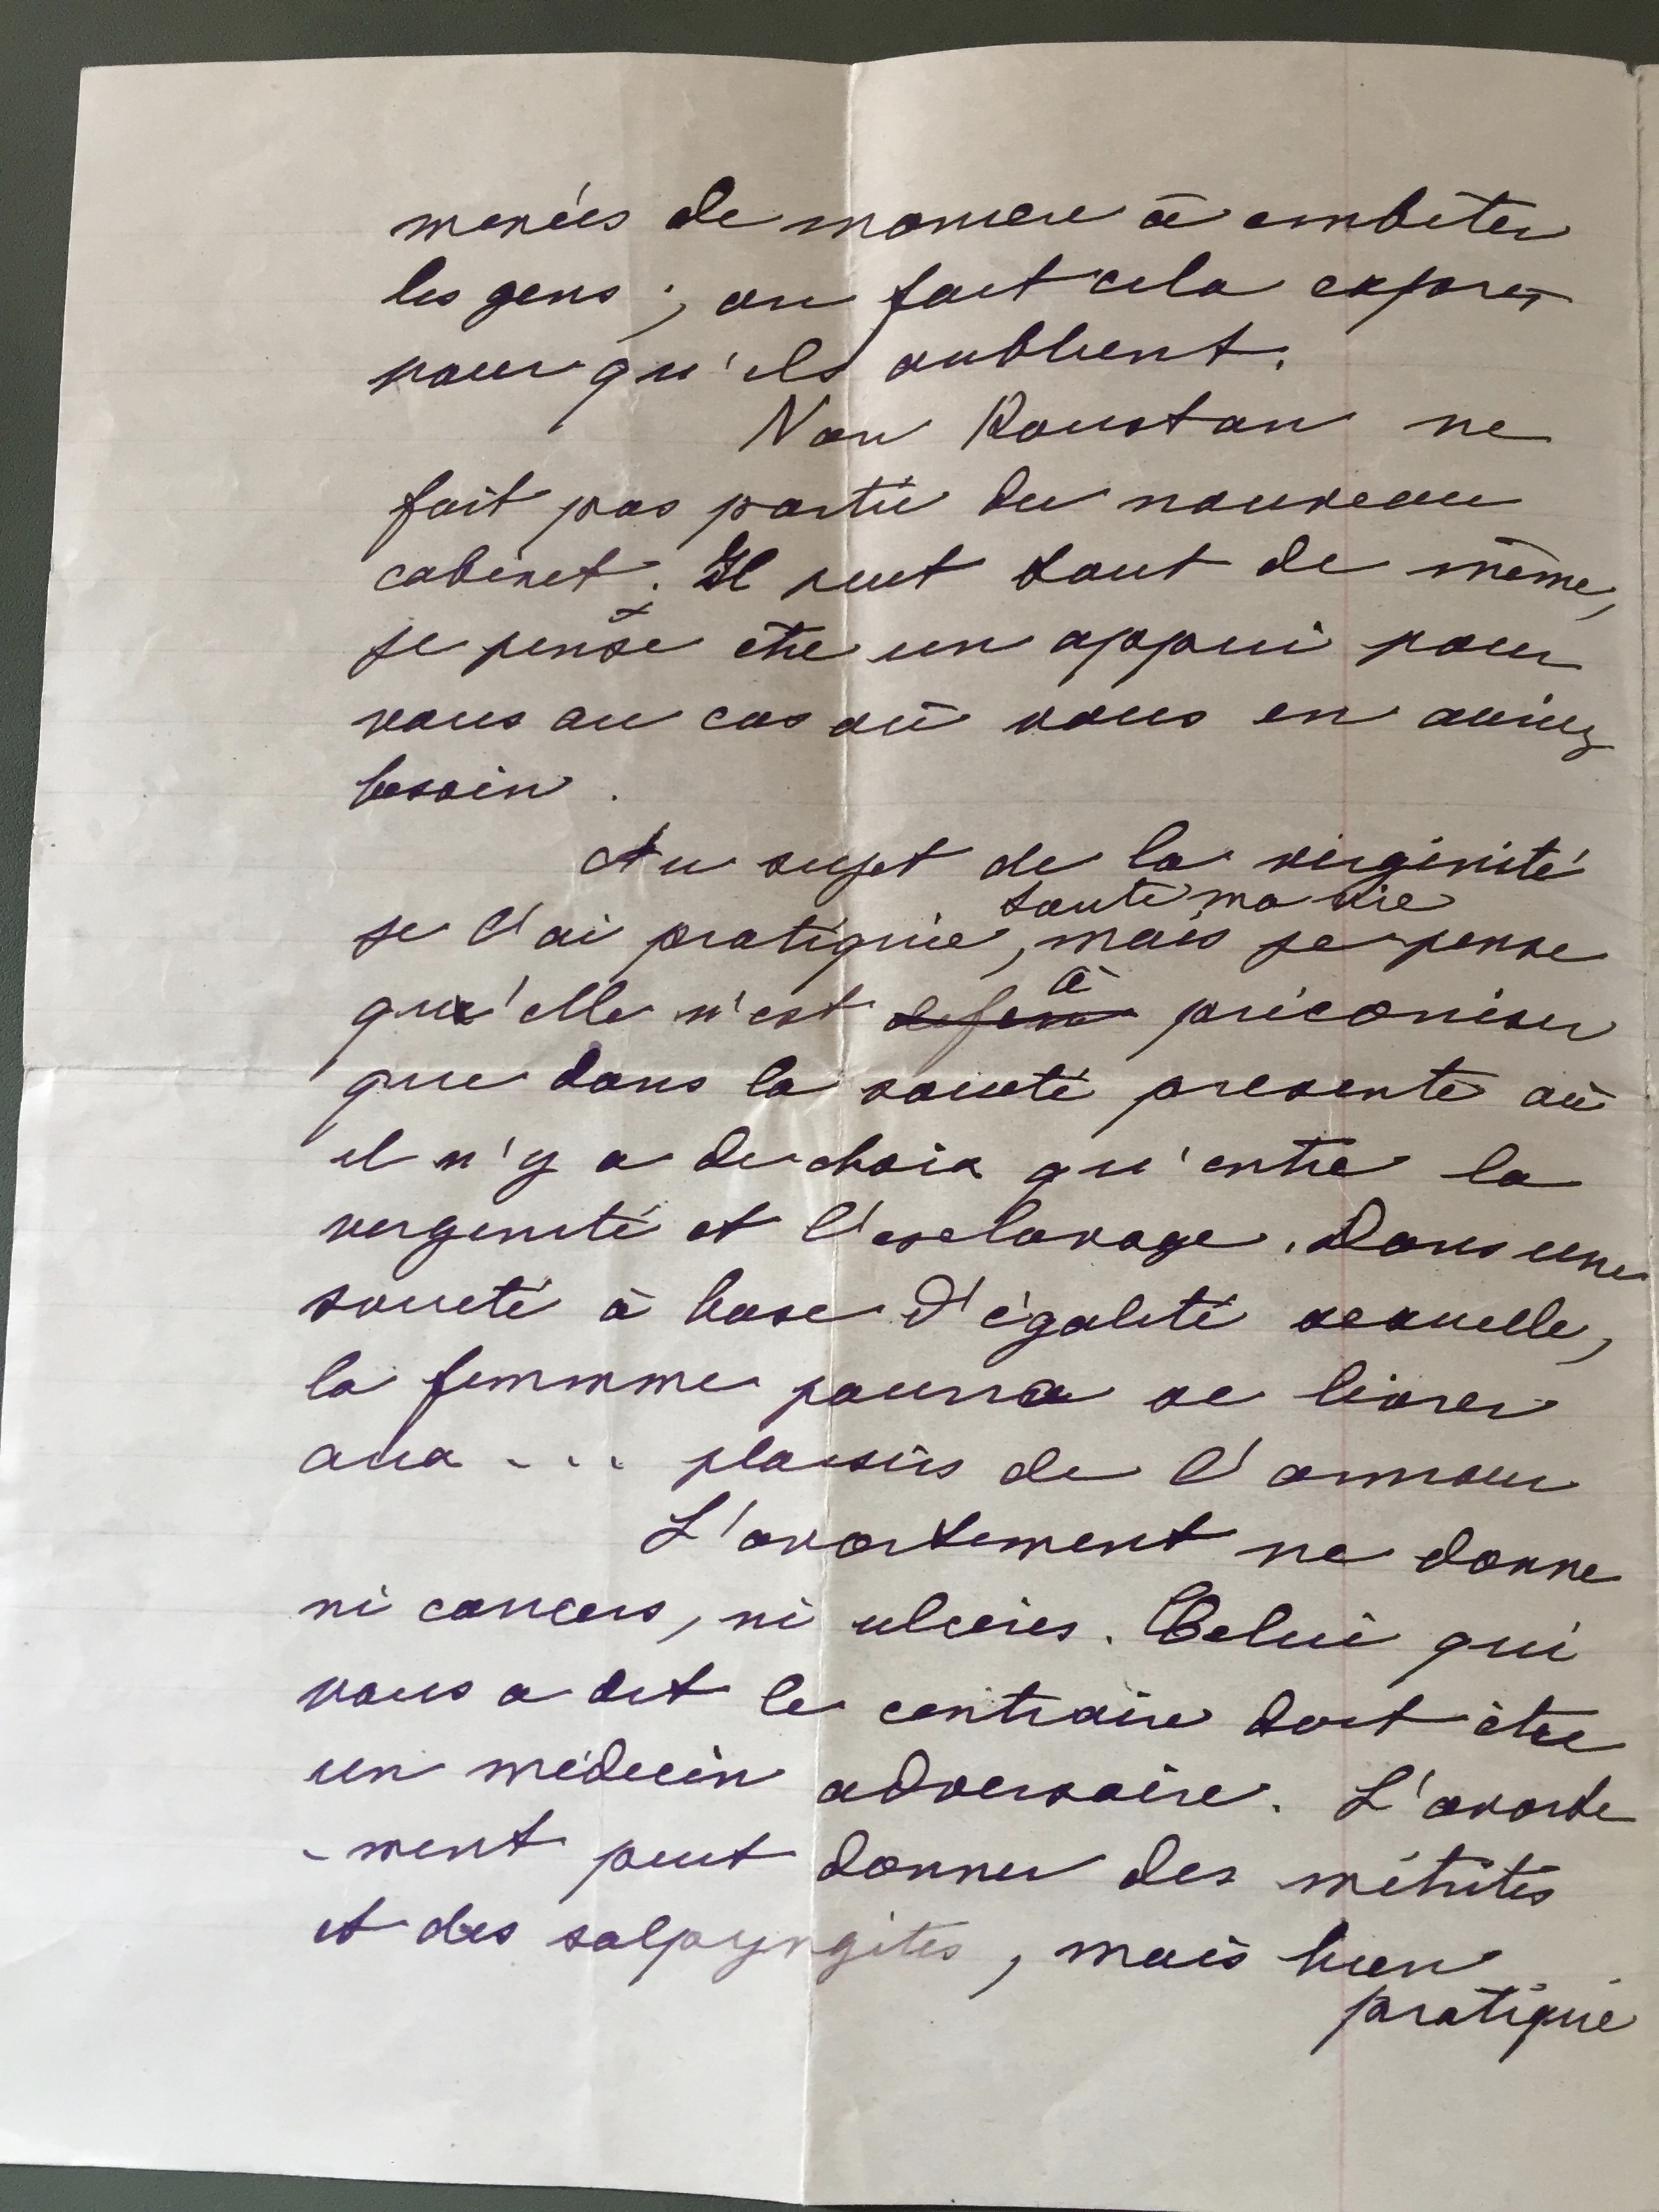 menées de manière à embêter
les gens ; on fait cela exprès
pour qu'ils oublient.
Non Roustan ne
fait pas partie du nouveau
cabinet. Il peut tout de même,
je pense être un appui pour
vous au cas où vous en auriez
besoin.
Au sujet de la virginité
toute ma vie
je l'ai pratiquée, mais je pense
qu'elle n'est à préconiser
que dans la société presente où
il n'y a de choix qu'entre la
verginité et l'esclavage. Dans une
société à base d'égalité sexuelle,
la femmme pourra se livrer
aux ... plaisirs de l'amour
L'avortement ne donne
ni cancers, ni ulcères. Celui qui
vous a dit le contraire doit être
un médecin adversaire. L'avorte
-ment peut donner des métrites
et des salpyngites, mais bien
pratiqué